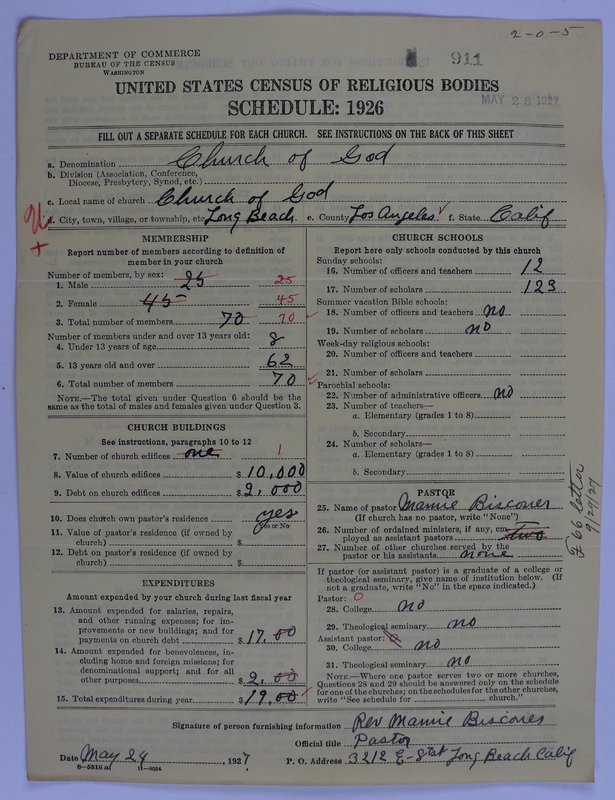 2-0-5
911
DEPARTMENT OF COMMERCE
BUREAU OF THE CENSUS
WASHINGTON
UNITED STATES CENSUS OF RELIGIOUS BODIES
MAY 28 1927
SCHEDULE: 1926
FILL OUT A SEPARATE SCHEDULE FOR EACH CHURCH. SEE INSTRUCTIONS ON THE BACK OF THIS SHEET
a. Denomination Church of God
b. Division (Association, Conference,
Diocese, Presbytery, Synod, etc.)
c. Local name of church Church of God
d. City, town, village, or township, etc. Long Beach e. County Los Angeles f. State Calif
MEMBERSHIP
Report number of members according to definition of
member in your church
Number of members, by sex:
1. Male 25 25
2. Female 45 45
3. Total number of members 70 70
Number of members under and over 13 years old:
4. Under 13 years of age 8
5. 13 years old and over 62
6. Total number of members 70
NOTE.—The total given under Question 6 should be
the same as the total of males and females given under Question 3.
CHURCH BUILDINGS
See instructions, paragraphs 10 to 12
7. Number of church edifices one 1
8. Value of church edifices $ 10,000
9. Debt on church edifices $ 2,000
10. Does church own pastor's residence yes
Yes or No
11. Value of pastor's residence (if owned by
church) $
12. Debt on pastor's residence (if owned by
church) $
EXPENDITURES
Amount expended by your church during last fiscal year
13. Amount expended for salaries, repairs,
and other running expenses; for im-
provements or new buildings; and for
payments on church debt $ 17.00
14. Amount expended for benevolences, in-
cluding home and foreign missions; for
denominational support; and for all
other purposes $ 2.00
15. Total expenditures during year $ 19.00
CHURCH SCHOOLS
Report here only schools conducted by this church
Sunday schools:
16. Number of officers and teachers 12
17. Number of scholars 123
Summer vacation Bible schools:
18. Number of officers and teachers no
19. Number of scholars no
Week-day religious schools:
20. Number of officers and teachers
21. Number of scholars
Parochial schools:
22. Number of administrative officers no
23. Number of teachers—
a. Elementary (grades 1 to 8)
b. Secondary
24. Number of scholars—
a. Elementary (grades 1 to 8)
b. Secondary
PASTOR
25. Name of pastor Mamie Biscoues
(If church has no pastor, write "None")
26. Number of ordained ministers, if any, em-
ployed as assistant pastors two
27. Number of other churches served by the
pastor or his assistants none
If pastor (or assistant pastor) is a graduate of a college or
theological seminary, give name of institution below. (If
not a graduate, write "No" in the space indicated.)
Pastor: 0
28. College no
29. Theological seminary no
Assistant pastor: 0
30. College no
31. Theological seminary no
NOTE.—Where one pastor serves two or more churches,
Questions 28 and 29 should be answered only on the schedule
for one of the churches; on the schedules for the other churches,
write "See schedule for church."
F 66 letter
9/29/27
Signature of person furnishing information Rev Mamie Biscoues
Official title Pastor
Date May 24, 1927 P. O. Address 3212 E-8 st Long Beach Calif
8-5518 a 11-9034